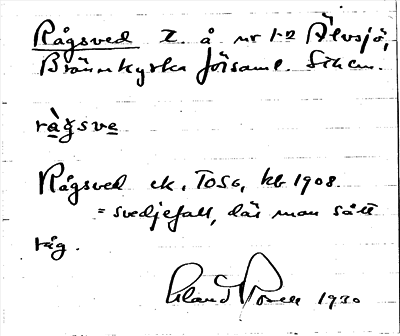 Rågsved t. å nr 1-2 Älvsjö,
Brännkyrka församl. Sthlm.
rågsve
Rågsved ek. T0SG, kb 1908.
= svedjefall, där man sått
råg.
1930